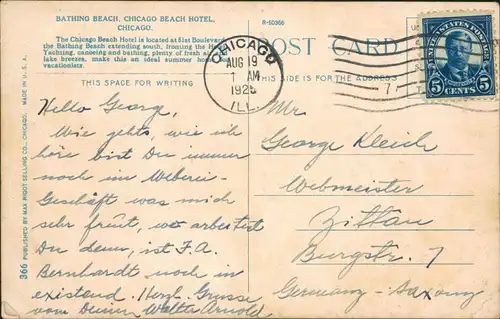 BATHING BEACH, CHICAGO BEACH HOTEL,
CHICAGO.
R-50366
The Chicago Beach Hotel is located at 51st Boulevard
the Bathing Beach extending south, fronning the Hotel
Yachting, canoeing and bathing, plenty of fresh air
lake breezes, make this an ideal summer home
vacationists.
THIS SPACE FOR WRITING
POST CARD
THIS SIDE IS FOR THE ADDRESS
CHICAGO
AUG 19
1 AM
1925
ILL.
5 CENTS 5
Hello Georg,
Wie gehts, wie ich
höre bist Du immer
noch im Weberei-
Geschäft was mich
sehr freut, wo arbeitest
Du denn, ist F.A.
Bernhardt noch in
existend. Herzl. Grusse
vom Deinen Walter Arnold
Mr.
George Kleich
Webmeister
Zittau
Burgstr. 7
Germany - Saxony
366 PUBLISHED BY MAX RIGOT SELLING CO., CHICAGO. MADE IN U.S.A.